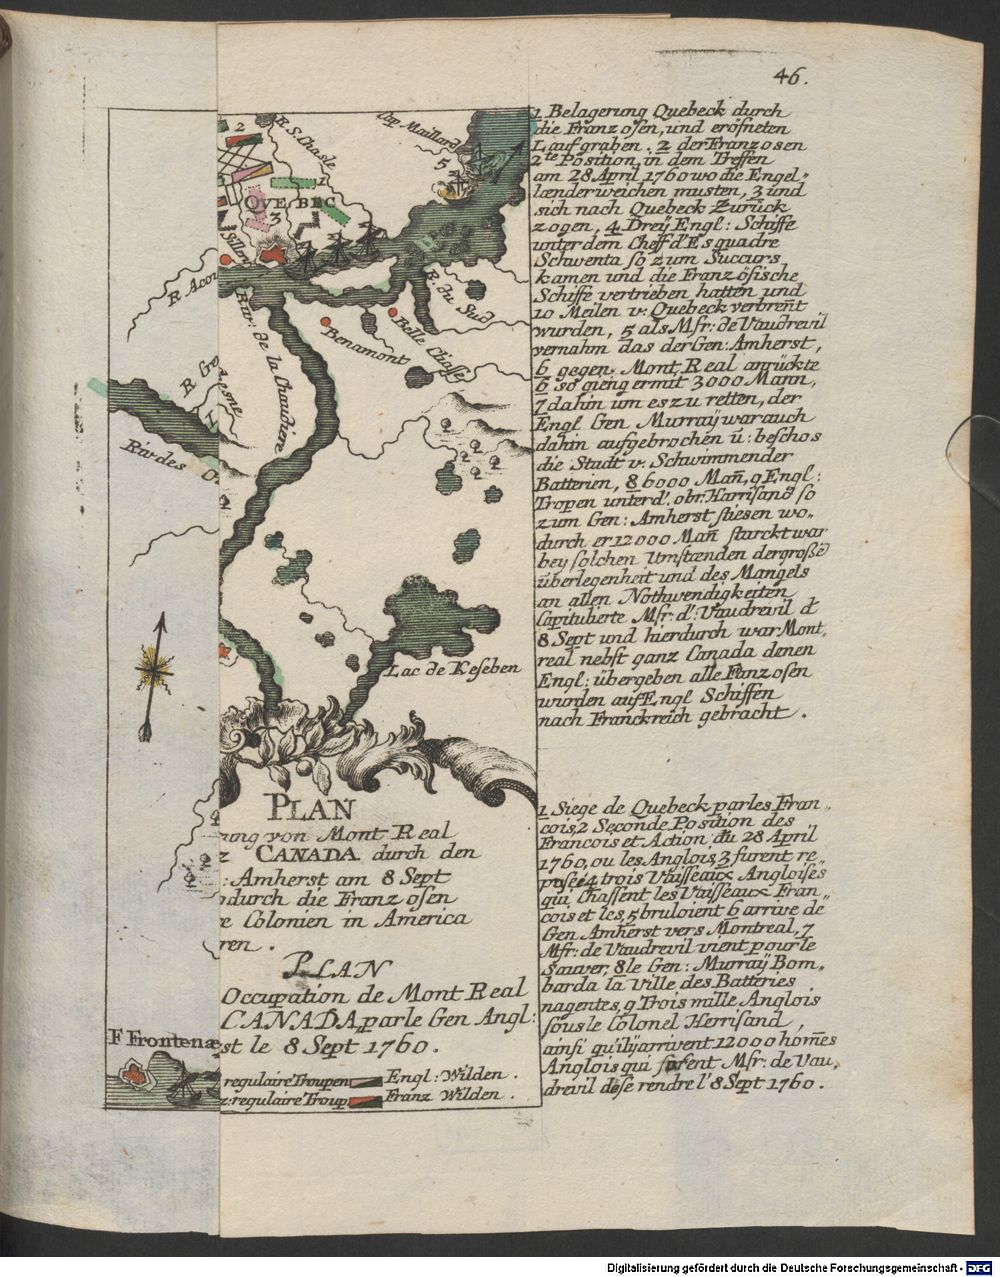 46.
1 Belagerung Quebeck durch
die Franzosen, und eröfneten
Laufgraben. 2 der Franzosen
2te Position, in dem Treffen
am 28 April 1760 wo die Engel„
lænder weichen musten, 3 und
sich nach Quebeck Zurück
zogen, 4 Dreÿ Engl: Schiffe
unter dem Cheff d'Esquadre
Schwenta so zum Succurs
kamen und die Französische
Schiffe vertrieben hatten und
10 Meilen v. Quebeck verbreñt
wurden, 5 als Msr: de Vaudrevil
vernahm das der Gen: Amherst,
6 gegen Mont Real anrückte
6 so gieng er mit 3000 Mann,
7 dahin um es zu retten, der
Engl Gen Murraÿ war auch
dahin aufgebrochen ū: beschos
die Stadt v. Schwimmender
Batterien, 8 6000 Mañ, 9 Engl:
Tropen unter d'. obr. Harrisand so
zum Gen: Amherst stiesen wo„
durch er 12000 Mañ starckt war
beÿ solchen Umstænden der große
überlegenheit und des Mangels
an allen Nothwendigkeiten
Capitulierte Msr: d'. Vaudrevil d
8 Sept und hierdurch war Mont,
real nebst ganz Canada denen
Engl: übergeben alle Fanzosen
wurden auf Engl Schiffen
nach Franckreich gebracht.
1 Siege de Quebeck par les Fran„
cois, 2 Seconde Position des
Francois et Action du 28 April
1760, ou les Anglois, 3 furent re„
4 trois Vaisseaux Angloises
qui Chassent les Vaisseaux Fran„
cois et les, 5 bruloient 6 arrive de
Gen Amherst vers Montreal, 7
Msr: de Vaudrevil vient pour le
sauver, 8 le Gen: Murraÿ Bom„
barda la Ville des Batteries
nagentes, 9 Trois mille Anglois
sous le Colonel Herrisand,
ainsi qu'ilÿ arrivent 12000 hom̄es
Anglois qui Msr: de Vau„
drevil de se rendre l' 8 Sept 1760.
2
R. S. Chasle
Cap Maillard
5
1
QVEBEC
3
Sillery
R Acou
Riv: de la Chaudiere
R. du Sud
Benamont
Belle Chasse
R Ge
Riv des O
2
2
2
2
2
Lac de Keseben
PLAN
ung von Mont Real
CANADA durch den
: Amherst am 8 Sept
durch die Franzosen
e Colonien in America
ren.
PLAN
Occupation de Mont Real
CANADA, par le Gen Angl:
st le 8 Sept 1760.
F Frontenæ
regulaire Troupen Engl: Wilden.
z: regulaire Troup Franz Wilden.
Digitalisierung gefördert durch die Deutsche Forschungsgemeinschaft - DFG